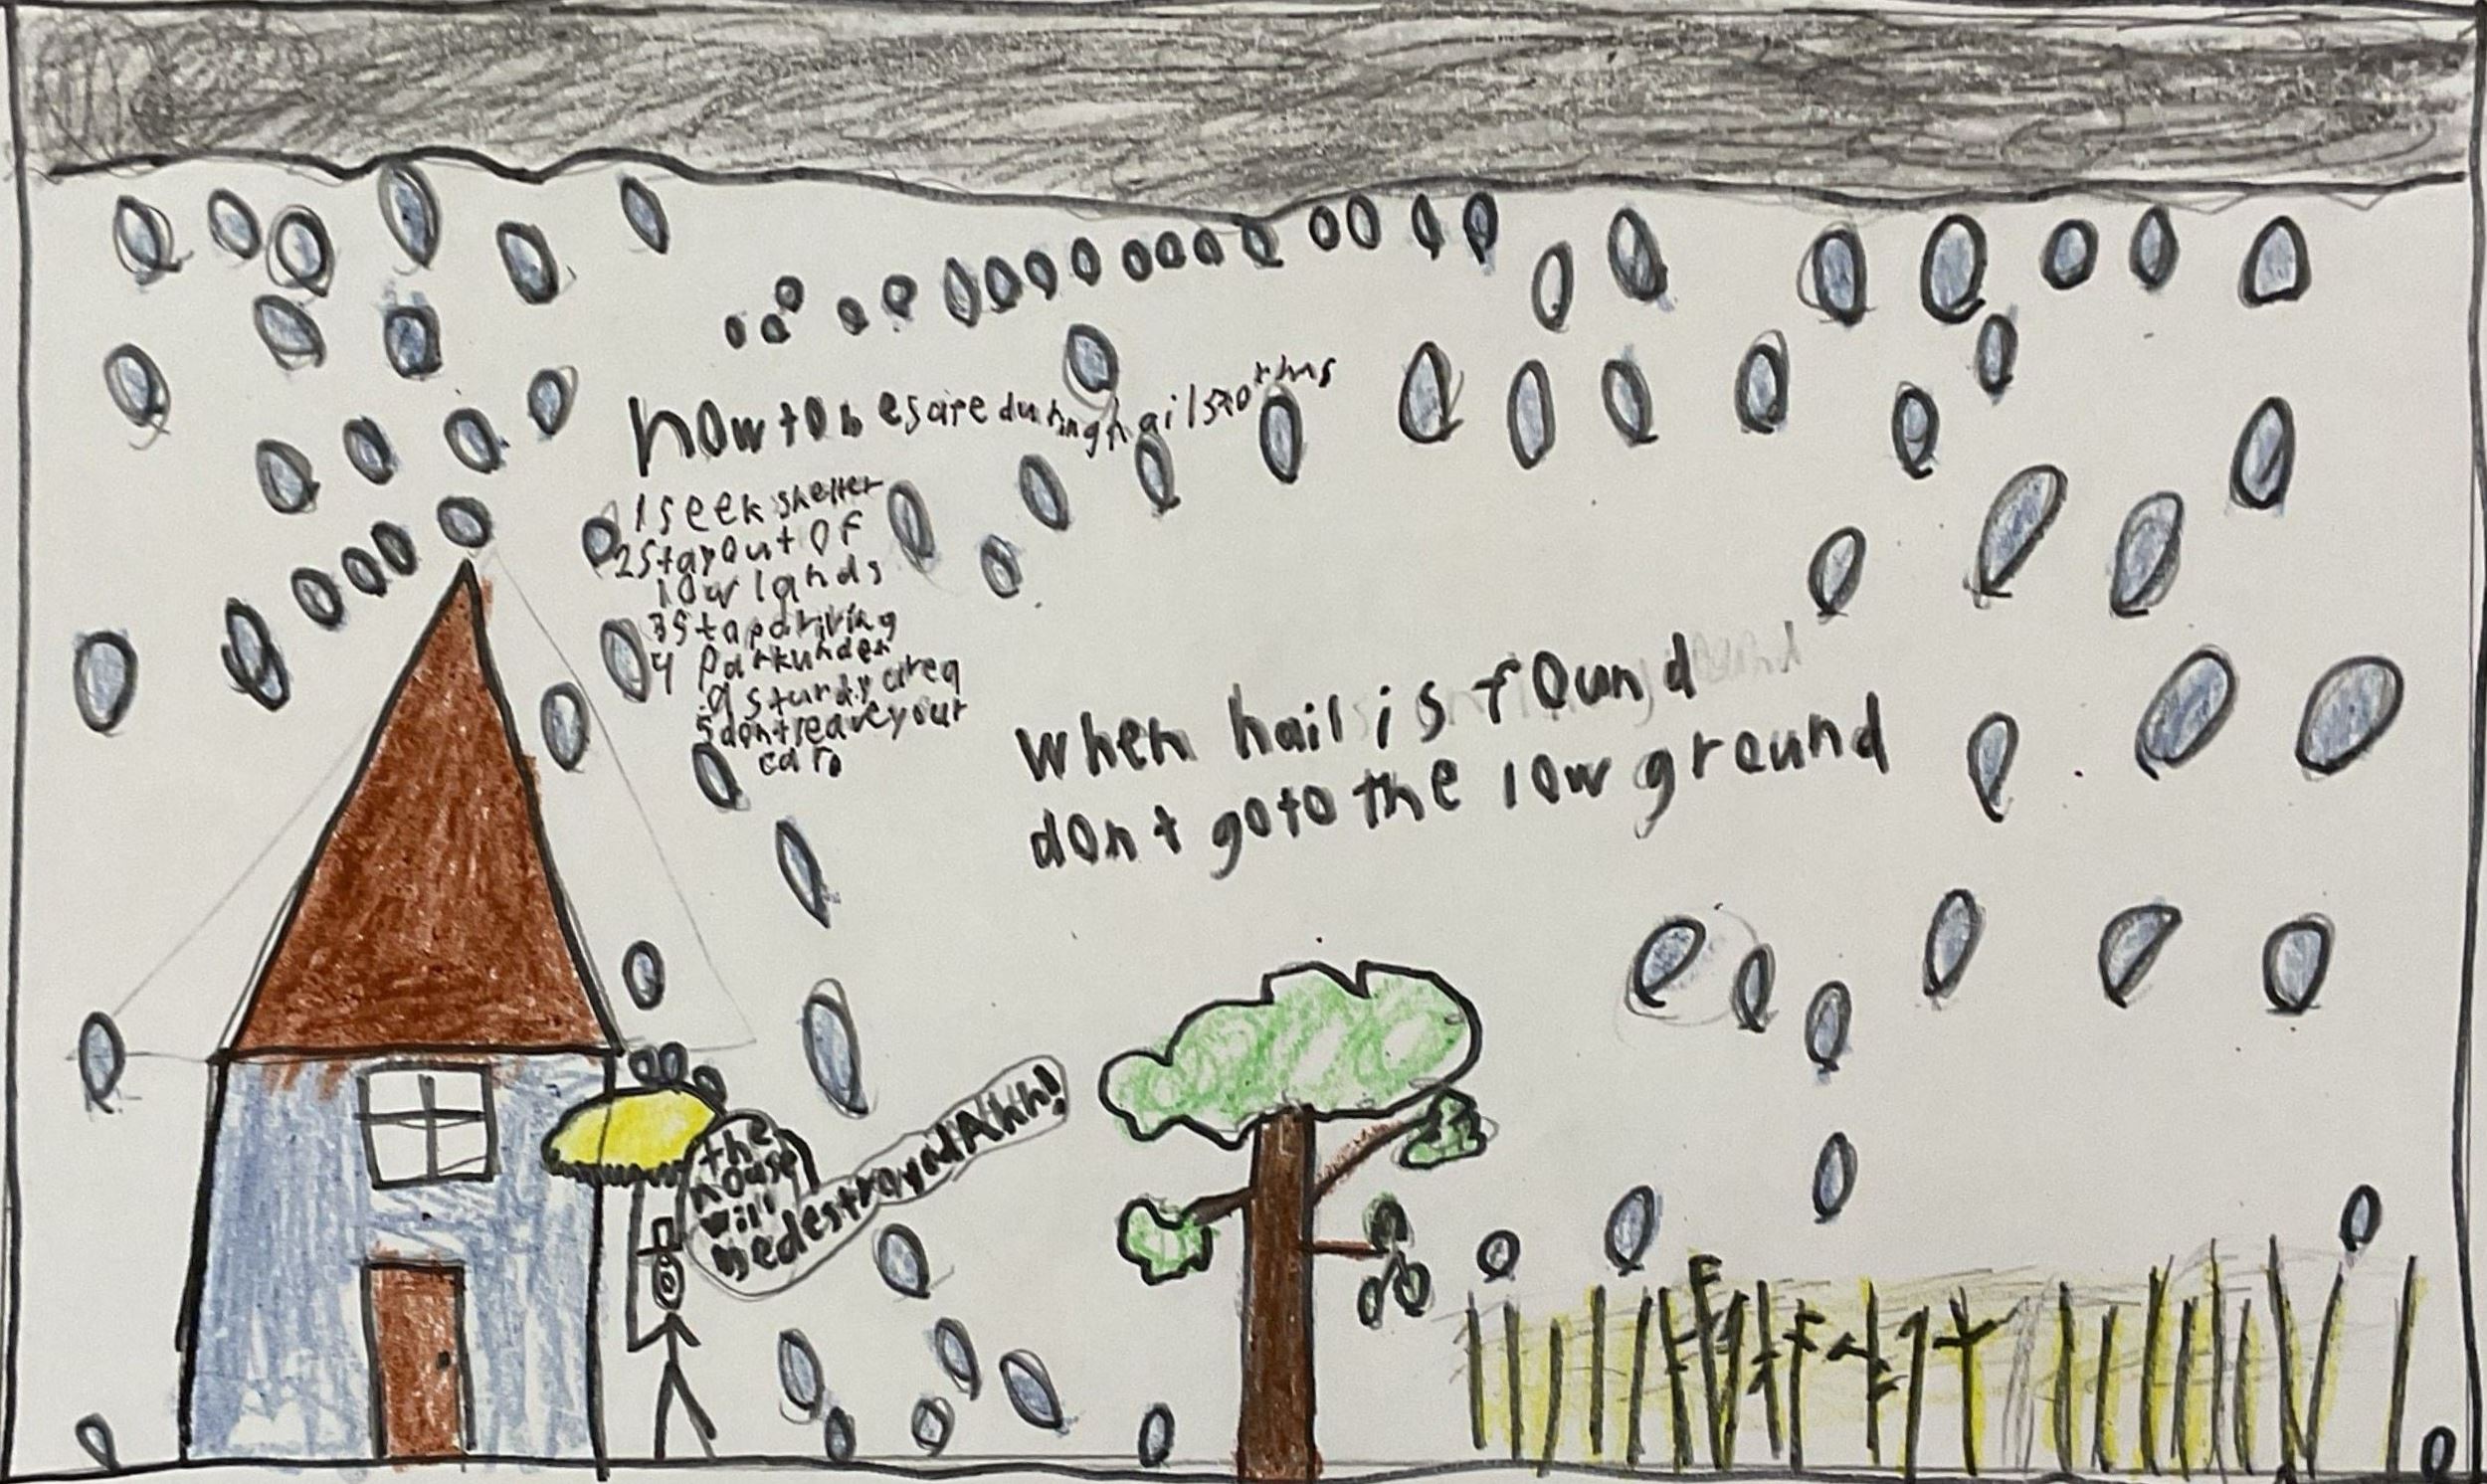 how to be safe during hailstorms
1 seek shelter
2 stay out of
low lands
3 stop driving
4 park under
a sturdy area
5 dont leave your
car.
when hail is found
dont go to the low ground
the
house
will
be destroyed Ahh!